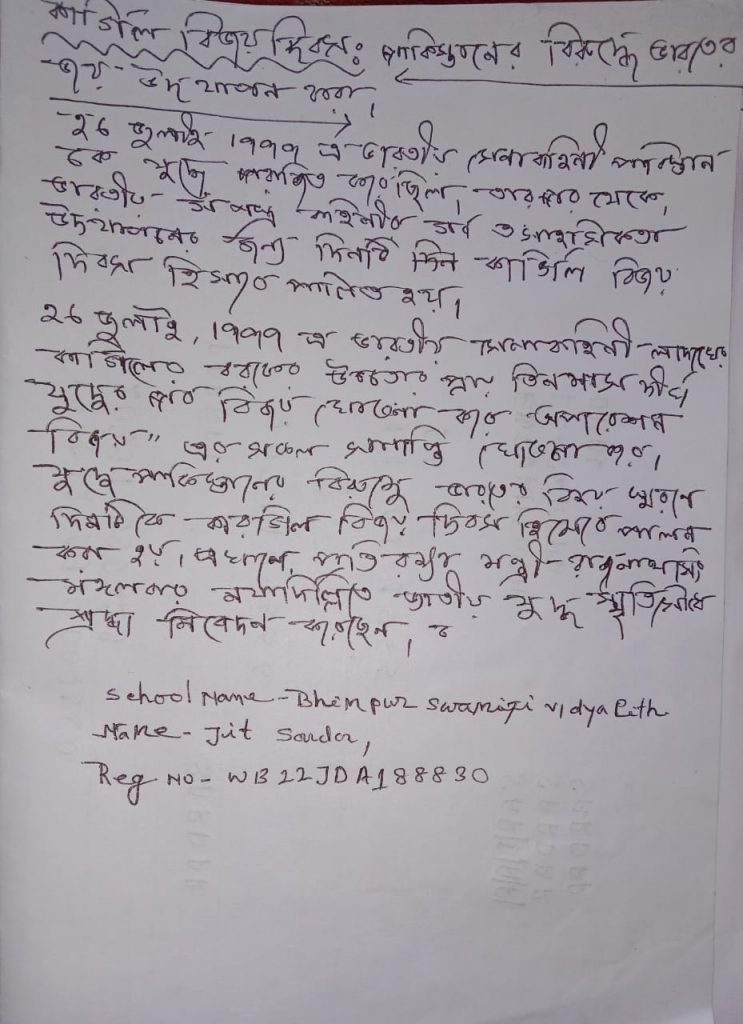 কার্গিল বিজয় দিবস: পাকিস্তানের বিরুদ্ধে ভারতের
জয় উদযাপন করা।
২৬ জুলাই ১৯৯৯ এ ভারতীয় সেনাবাহিনী পাকিস্তান
কে যুদ্ধে পরাজিত করেছিল, তারপর থেকে,
ভারতীয় সশস্ত্র বাহিনীর গর্ব ও সাহসিকতা
উদযাপনের জন্য দিনটি দিন কার্গিল বিজয়
দিবস হিসাবে পালিত হয়।
২৬ জুলাই, ১৯৯৯ এ ভারতীয় সেনাবাহিনী লাদাখের
কার্গিলের বরফের উচ্চতায় প্রায় তিনমাস দীর্ঘ
যুদ্ধের পর বিজয় ঘোষণা করে অপারেশন
বিজয়" এর সফল সমাপ্তি ঘোষণা করে,
যুদ্ধে পাকিস্তানের বিরুদ্ধে ভারতের বিজয় স্মরণে
দিনটিকে কারগিল বিজয় দিবস হিসেবে পালন
করা হয়। প্রতিরক্ষা মন্ত্রী রাজনাথ সিং
মঙ্গলবার নয়াদিল্লিতে জাতীয় যুদ্ধ স্মৃতিসৌধে
শ্রদ্ধা নিবেদন করেছেন,
School Name - Bhimpur Swamiji Vidya Pith
Name - Jit Sardar,
Reg No - WB22JDA188830